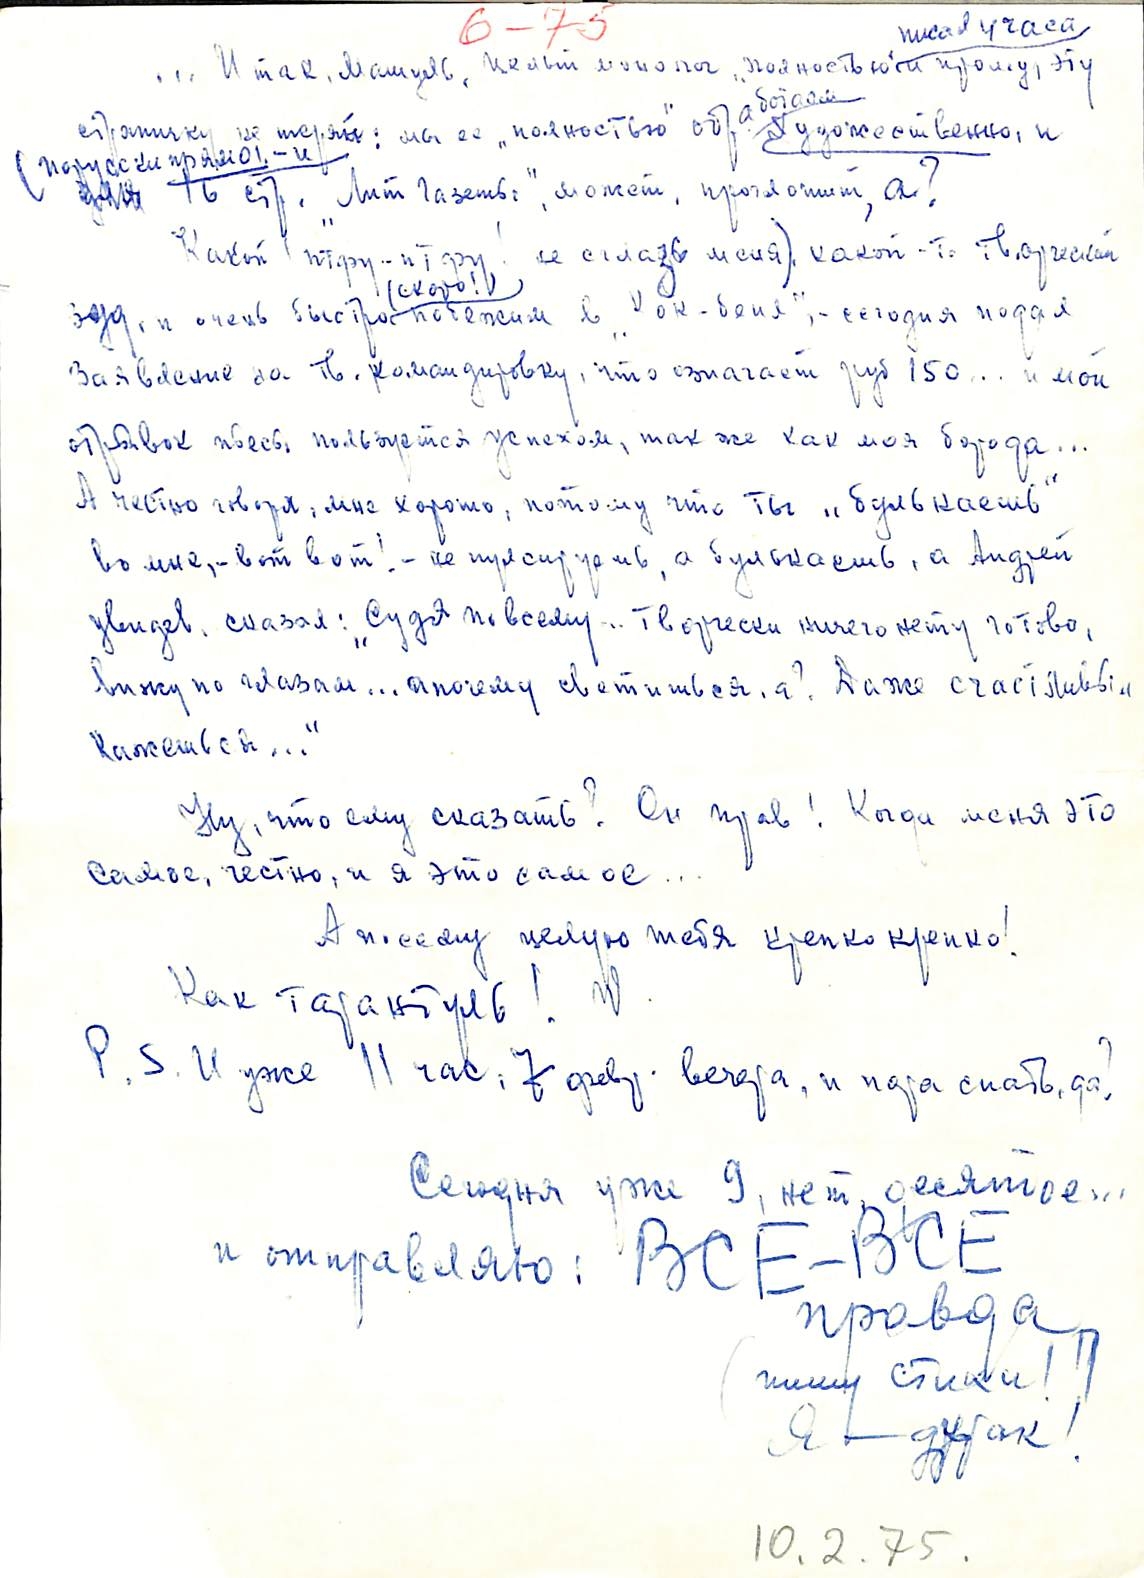 6-75
писал 4 часа
... Итак, Машуль, целый монолог „полностью“ и прошу, эту
страничку не теряй: мы ее „полностью“ обработаем художественно, и
(по русски прямо!, - и
16 стр. „Лит Газеты“, может, проглотит, а?
Какой (птфу-птфу! не сглазь меня), какой-то творческий
зуд, и очень быстро (скоро!) побежим в „Кок-бель“, - сегодня подал
Заявление на тв. командировку, что означает руб 150... и мой
отрывок пьесы пользуется успехом, так же как моя борода...
А честно говоря, мне хорошо, потому что ты „булькаешь“
во мне, - вот вот! - не пульсируешь, а булькаешь, а Андрей
увидев, сказал: „Судя по всему... творчески ничего нету готово,
вижу по глазам... а почему светишься, а? Даже счастливым
кажешься...“
Ну, что ему сказать? Он прав! Когда меня это
самое, честно, и я это самое...
А посему целую тебя крепко крепко!
Как тарантул!
P.S. И уже 11 час, 7 февр. вечера, и пора спать, да?
Сегодня уже 9, нет, десятое...
и отправляю: ВСЕ-ВСЕ
правда
(пишу стихи!!)
Я — дурак!
10.2.75.